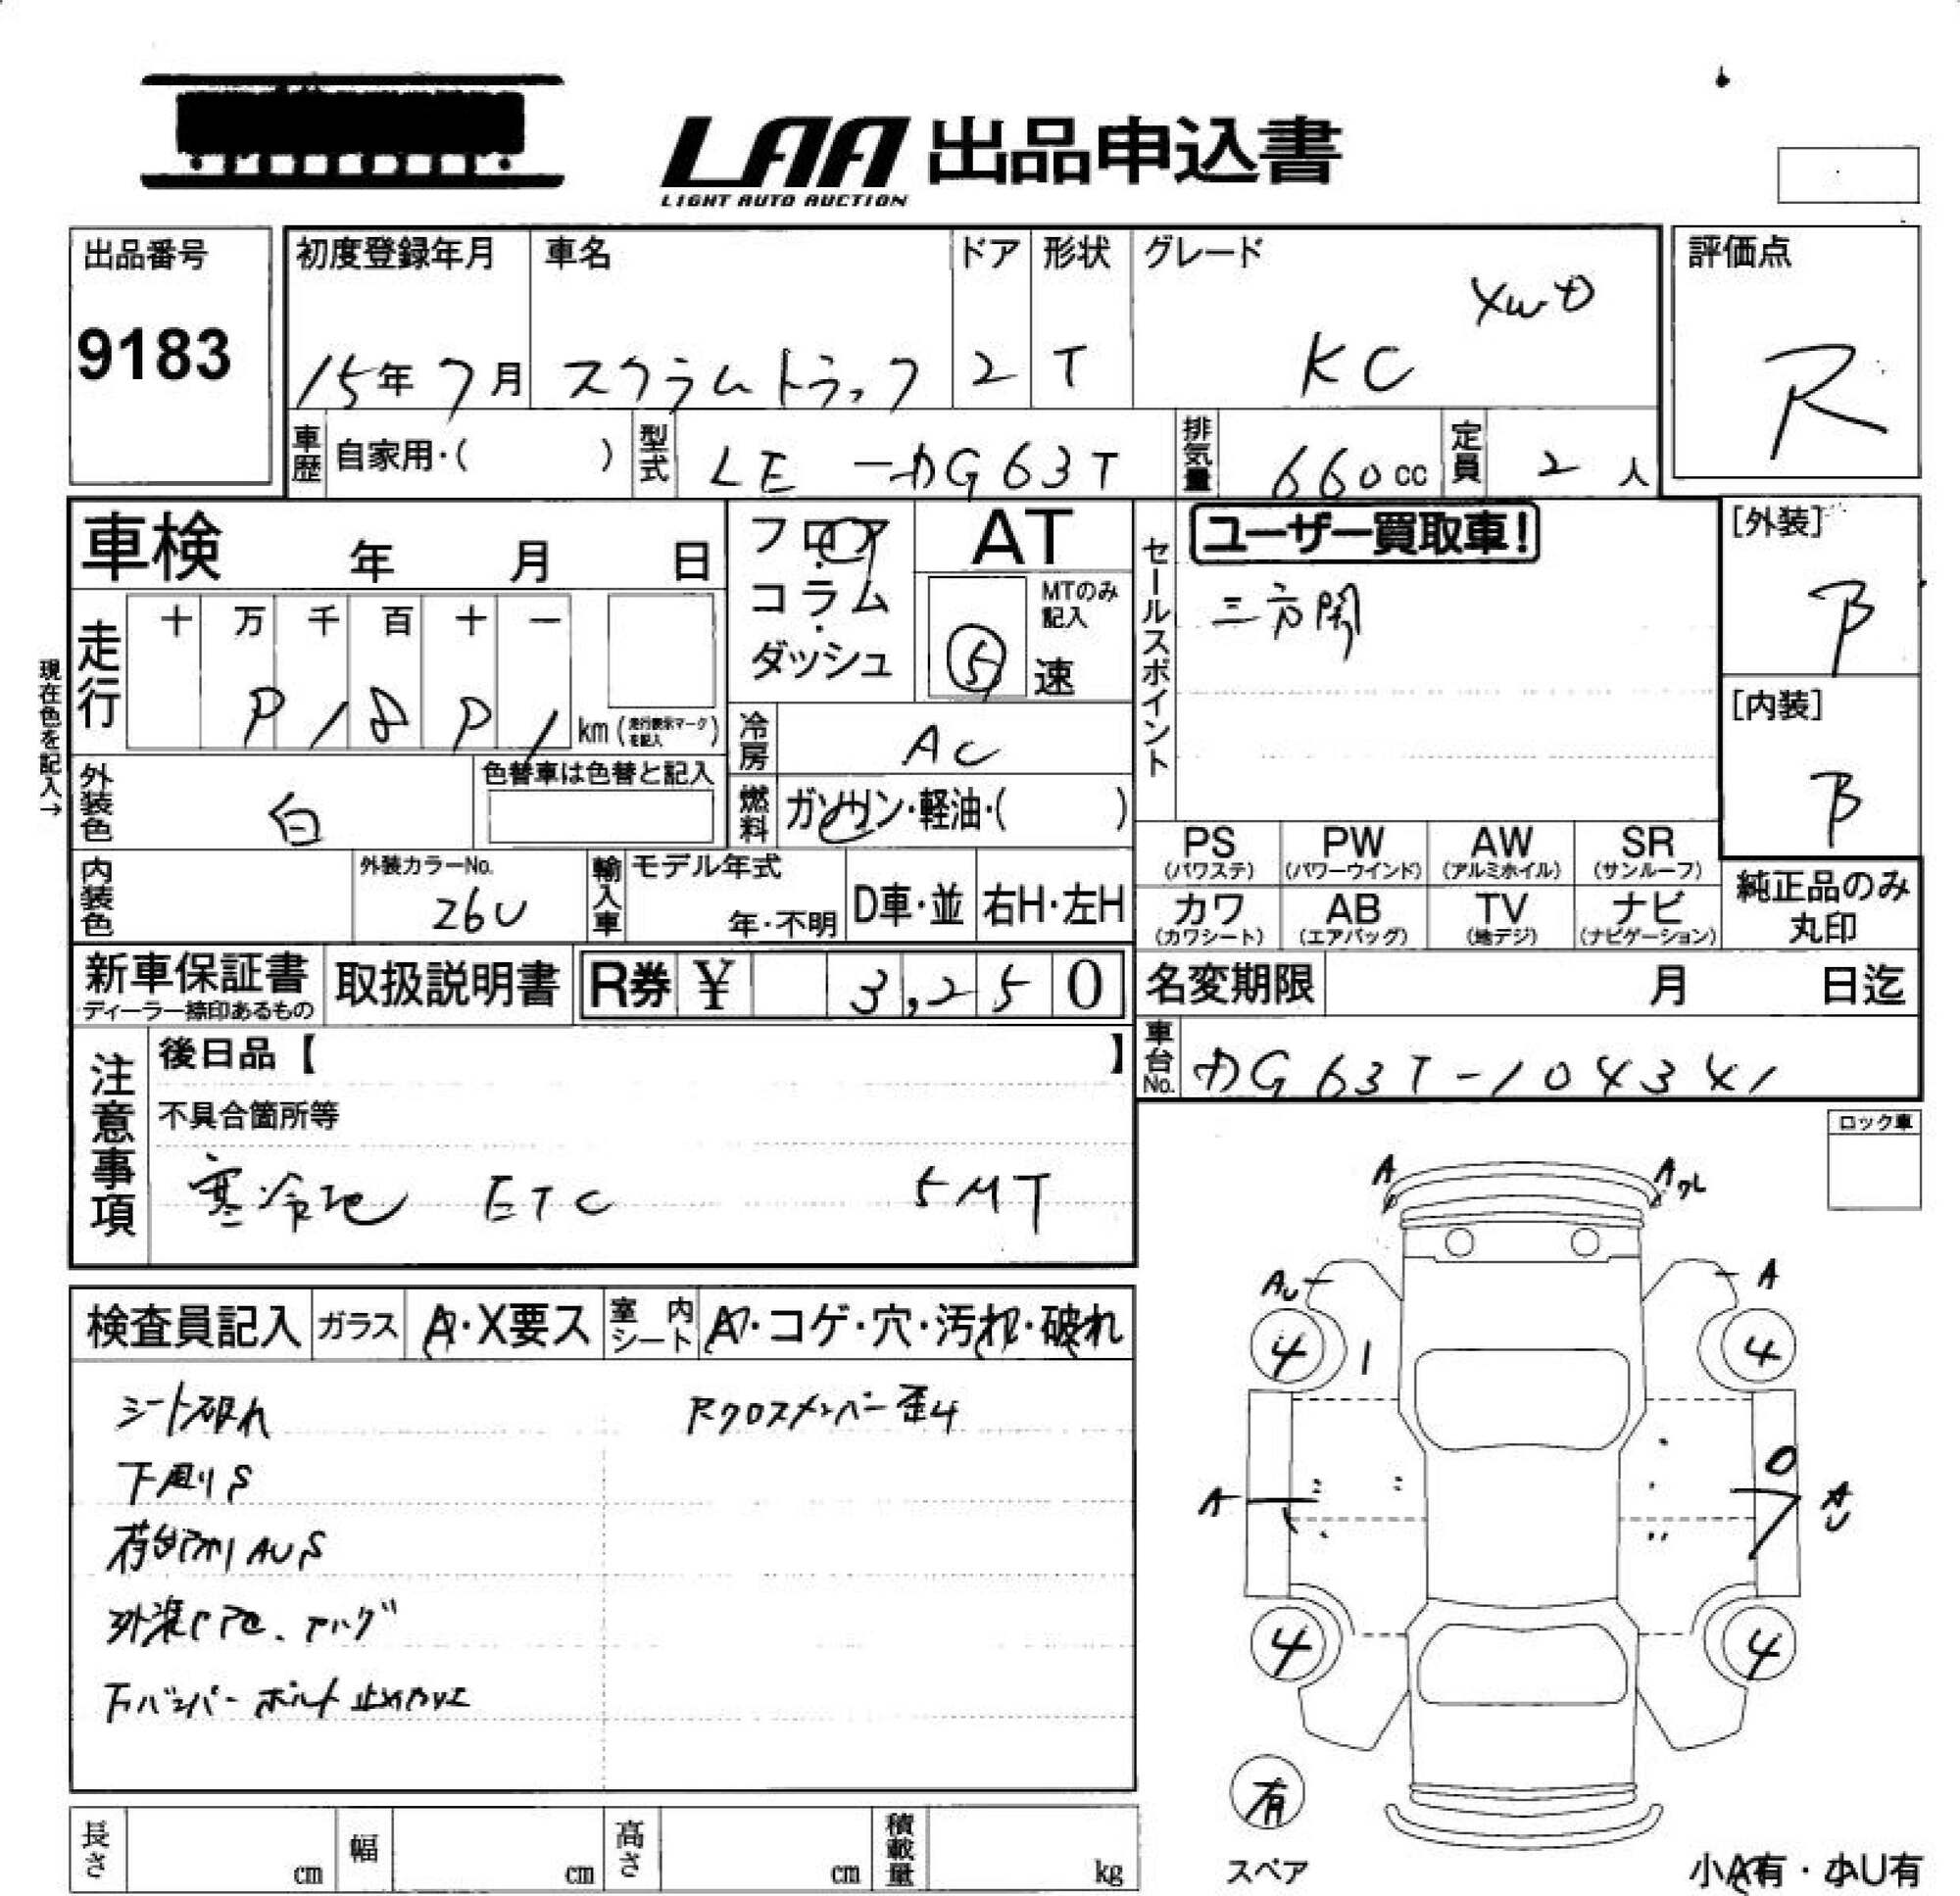 LAA 出品申込書
LIGHT AUTO AUCTION
出品番号
9183
初度登録年月 車名 ドア 形状 グレード
15年 7月 スクラムトラック 2 T KC 4WD
評価点
R
車歴 自家用・( ) 型式 LE-DG63T 排気量 660cc 定員 2人
車検 年 月 日
フロア・コラム・ダッシュ
AT
MTのみ記入
5 速
セールスポイント
ユーザー買取車!
三方開
[外装]
B
[内装]
B
現在色を記入→
走行 十 万 千 百 十 一
km (走行表示マークを記入)
冷房 AC
外装色 白 色替車は色替と記入
燃料 ガソリン・軽油・( )
内装色 外装カラーNo. 26U
輸入車 モデル年式 年・不明 D車・並 右H・左H
PS (パワステ) PW (パワーウインド) AW (アルミホイル) SR (サンルーフ)
カワ (カワシート) AB (エアバッグ) TV (地デジ) ナビ (ナビゲーション)
純正品のみ丸印
新車保証書 ディーラー捺印あるもの 取扱説明書 R券 ¥ 3,250
名変期限 月 日迄
車台No. DG63T-104341
注意事項
後日品【 】
不具合箇所等
寒冷地 ETC 5MT
ロック車
検査員記入 ガラス A・X要ス 室内シート A・コゲ・穴・汚れ・破れ
シート破れ Rクロスメンバー歪4
下廻りS
荷台アオリ AUS
外装
下バンパー ボルト止め
A A
AU A
4 1 4
A AU
4 4
有
スペア
小A有・小U有
長さ cm 幅 cm 高さ cm 積載量 kg